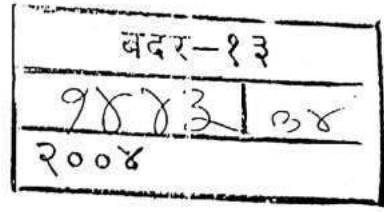 बदर-१३
१४४३ ३४
२००४